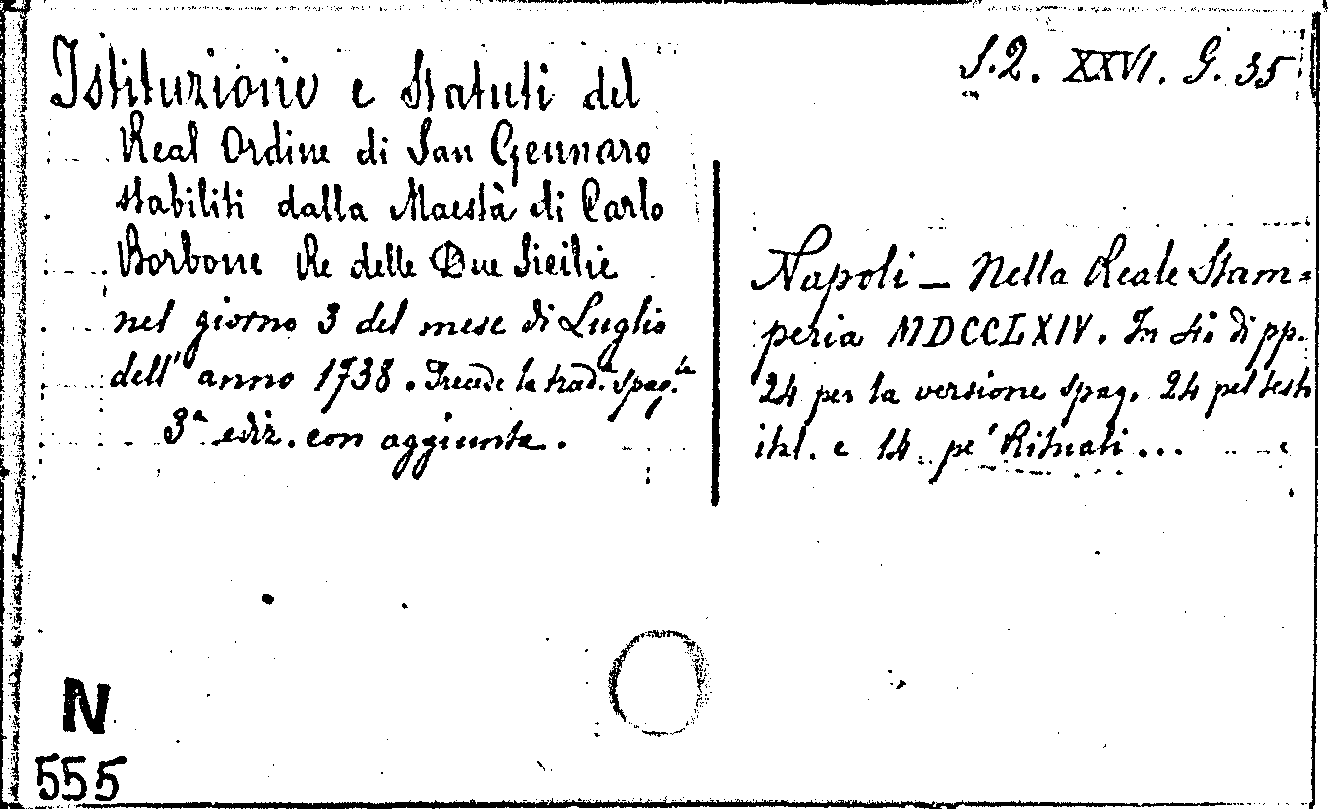 S.2. XXVI. G. 35
Istituzione e Statuti del
Real Ordine di San Gennaro
stabiliti dalla Maestà di Carlo
Borbone Re delle Due Sicilie
nel giorno 3 del mese di Luglio
dell'anno 1738. Precede la trad.e spag.la
3a ediz. con aggiunte.
Napoli — Nella Reale Stam=
peria MDCCLXIV. In 4: di pp.
24 per la versione spag. 24 pel testo
ital. e 14 pe' Rituali...
N
555